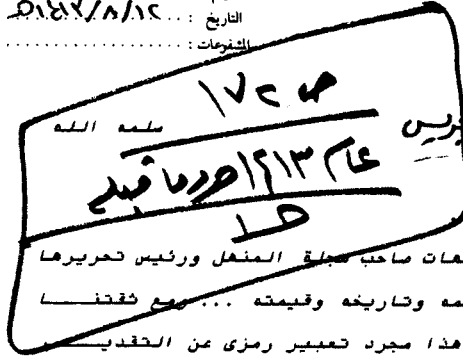 التاريخ : ١٤١٣/٨/١٢هـ
المشفوعات :
ص ١٧٢
سلمه الله
عام ١٤١٣هـ وما قبله
صاحب مجلة المنهل ورئيس تحريرها
وتاريخه وقيمته ... ومع ثقتنا
هذا مجرد تعبير رمزى عن